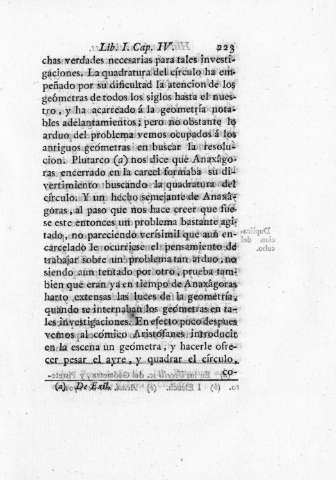 Lib. I. Cap. IV. 223
chas verdades necesarias para tales investi-
gaciones. La quadratura del círculo ha em-
peñado por su dificultad la atencion de los
geómetras de todos los siglos hasta el nues-
tro, y ha acarreado á la geometría nota-
bles adelantamientos; pero no obstante lo
arduo del problema vemos ocupados á los
antiguos geómetras en buscar la resolu-
cion. Plutarco (a) nos dice que Anaxágo-
ras encerrado en la carcel formaba su di-
vertimiento buscando la quadratura del
círculo. Y un hecho semejante de Anaxá-
goras, al paso que nos hace creer que fue-
se este entonces un problema bastante agi-
tado, no pareciendo verisímil que aun en-
carcelado le ocurriese el pensamiento de
trabajar sobre un problema tan arduo, no
siendo aun tentado por otro, prueba tam-
bien que eran ya en tiempo de Anaxágoras
harto extensas las luces de la geometría,
quando se internaban los geómetras en ta-
les investigaciones. En efecto poco despues
vemos al cómico Aristófanes introducir
en la escena un geómetra, y hacerle ofre-
cer pesar el ayre, y quadrar el círculo,
co-
(a) De Exil.